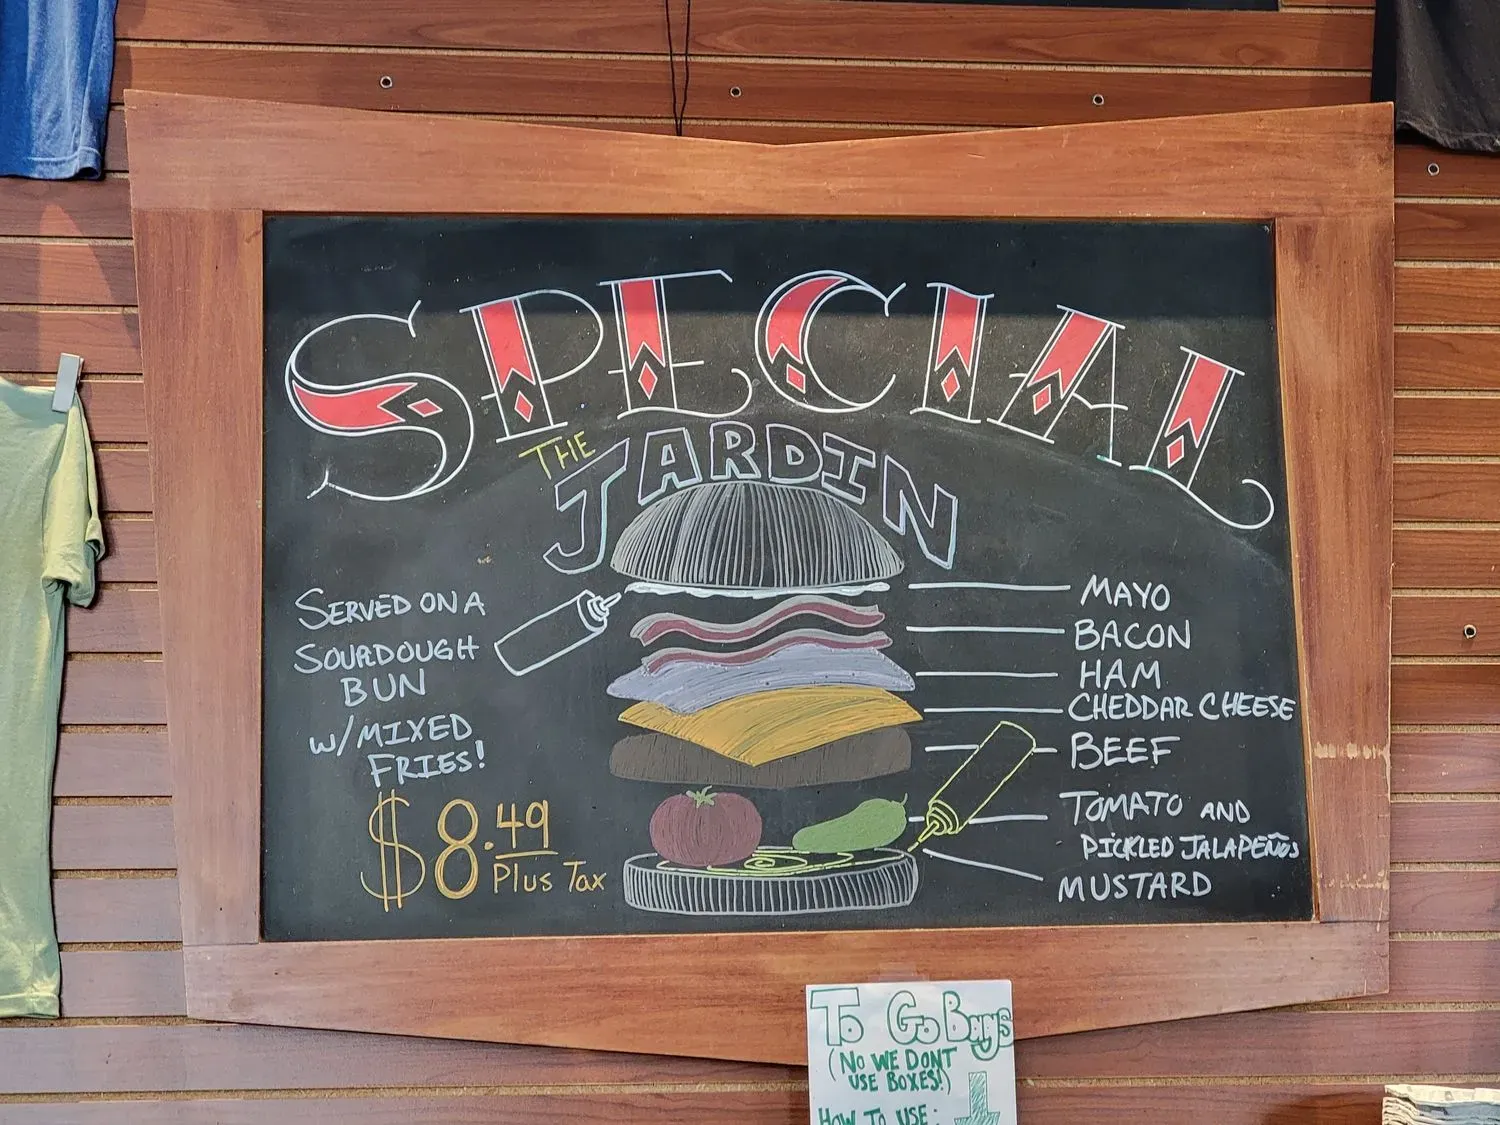 SPECIAL
THE
JARDIN
SERVED ON A
SOURDOUGH
BUN
W/MIXED
FRIES!
$8.49
Plus Tax
MAYO
BACON
HAM
CHEDDAR CHEESE
BEEF
TOMATO AND
PICKLED JALAPEÑOS
MUSTARD
To Go Bags
(NO WE DONT
USE BOXES!)
HOW TO USE: